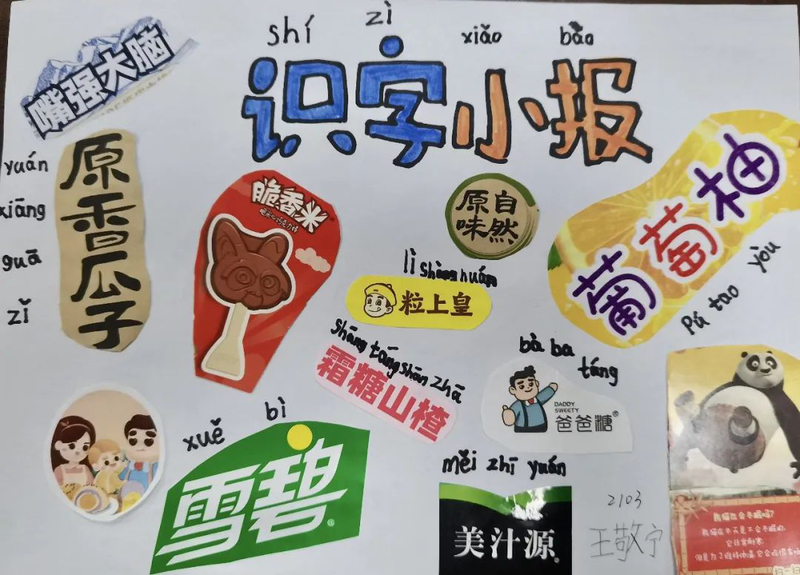 shí zì xiǎo bào
识字小报
最强大脑
yuán
xiāng
guā
zǐ
原香瓜子
脆香米
自然
原味
葡萄柚
Pú tao yòu
lì shàng huáng
粒上皇
shāng táng shān zhā
霜糖山楂
bà ba
táng
DADDY
SWEETY
爸爸糖®
xuě bì
雪碧®
měi zhī yuán
美汁源®
2103
王敬宁